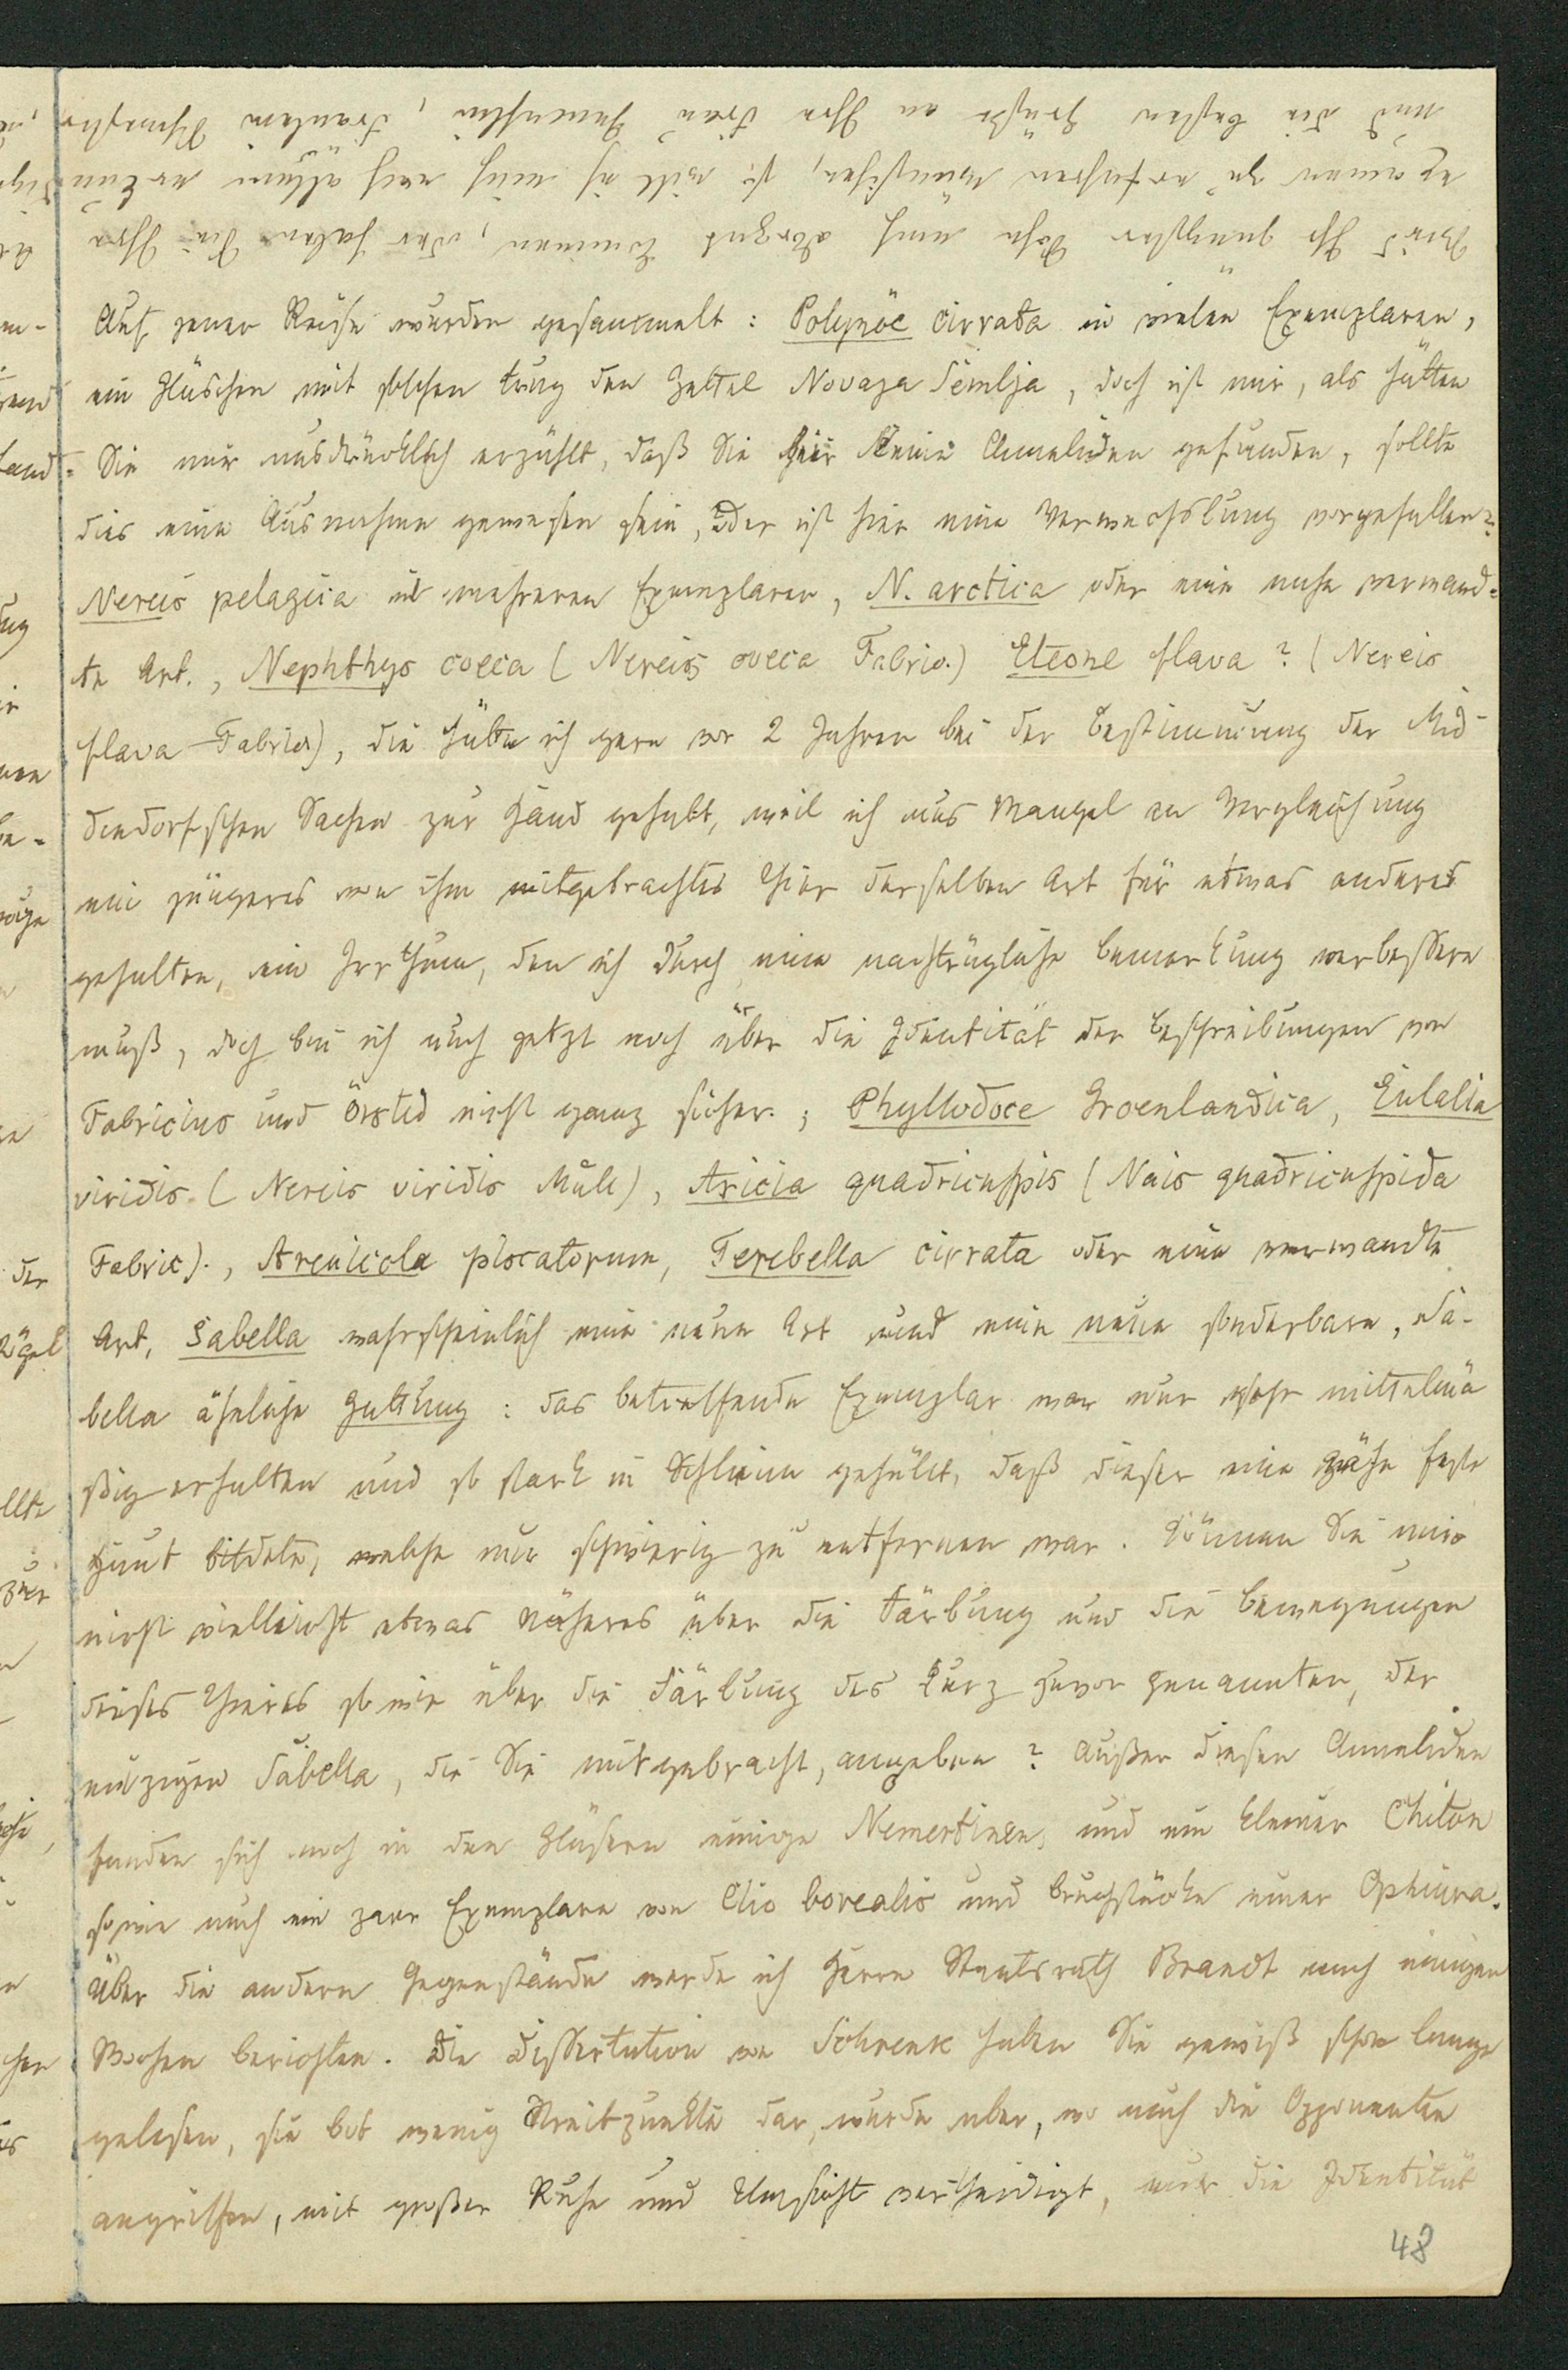 Wird Ihr jüngster Sohn nach Dorpat kommen, oder haben Sie Ihre
und die besten Grüße an Ihre Frau Gemahlin, Fräulein Schwester
Auf jener Reise wurden gesammelt: Polynöe cirrata in vielen Exemplaren,
ein Gläschen mit solchen trug den Zettel Novaja Semlja, doch ist mir, als hätten
Sie mir ausdrücklich erzählt, daß Sie hier keine Anneliden gefunden, sollte
dies eine Ausnahme gewesen sein, oder ist hier eine Verwechslung vorgefallen?
Nereis pelagica in mehreren Exemplaren, N. arctica oder eine nahe verwand=
te Art., Nephthys coeca (Nereis coeca Fabric.) Eteone flava? (Nereis
flava Fabric), die hätte ich gern vor 2 Jahren bei der Bestimmung der Mid-
dendorfschen Sachen zur Hand gehabt, weil ich aus Mangel an Vergleichung
ein jüngeres von ihm mitgebrachtes Thier derselben Art für etwas anderes
gehalten, ein Irrthum, den ich durch eine nachträgliche Bemerkung verbessern
muß, doch bin ich auch jetzt noch über die Identität der Beschreibungen von
Fabricius und Örsted nicht ganz sicher.; Phyllodoce Groenlandica, Eulalia
viridis (Nereis viridis Müll), Aricia quadricuspis (Nais quadricuspida
Fabric)., Arenicola piscatorum, Terebella cirrata oder eine verwandte
Art, Sabella wahrscheinlich eine neue Art und eine neue sonderbare, Sa-
bella ähnliche Gattung: das betreffende Exemplar war nur sehr mittelmä
ßig erhalten und so stark in Schleim gehüllt, daß dieser eine zähe feste
Haut bildete, welche nur schwierig zu entfernen war. Können Sie mir
nicht vielleicht etwas Näheres über die Färbung und die Bewegungen
dieses Thieres so wie über die Färbung des kurz zuvor genannten, der
einzigen Sabella, die Sie mitgebracht, angeben? Außer diesen Anneliden
fanden sich noch in den Gläsern einige Nemertinen, und ein kleiner Chiton
sowie auch ein paar Exemplare von Clio borealis und Bruchstücke einer Ophiura.
Über die andern Gegenstände werde ich Herrn Staatsrath Brandt nach einigen
Wochen berichten. Die Dissertation von Schrenk haben Sie gewiß schon lange
gelesen, sie bot wenig Streitpunkte dar, wurde aber, wo auch die Opponenten
angriffen, mit großer Ruhe und Umsicht vertheidigt, nur die Identität
48